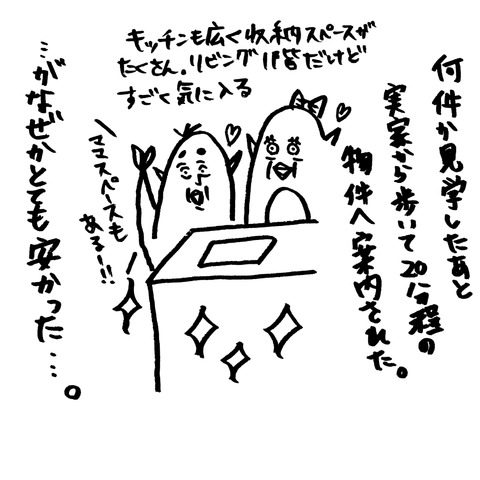 何件か見学したあと
実家から歩いて20分程の
物件へ案内された。
キッチンも広く収納スペースが
たくさん。リビング1階だけど
すごく気に入る
ママスペースも
ある!!
…がなぜかとても安かった…。